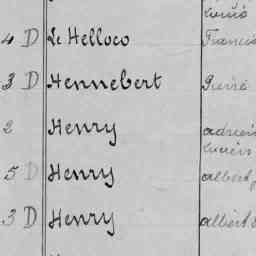 4 D Le Helloco Francis
3 D Hennebert Pierre
2 Henry Adrien
Lucien
5 D Henry Albert
3 D Henry Albert